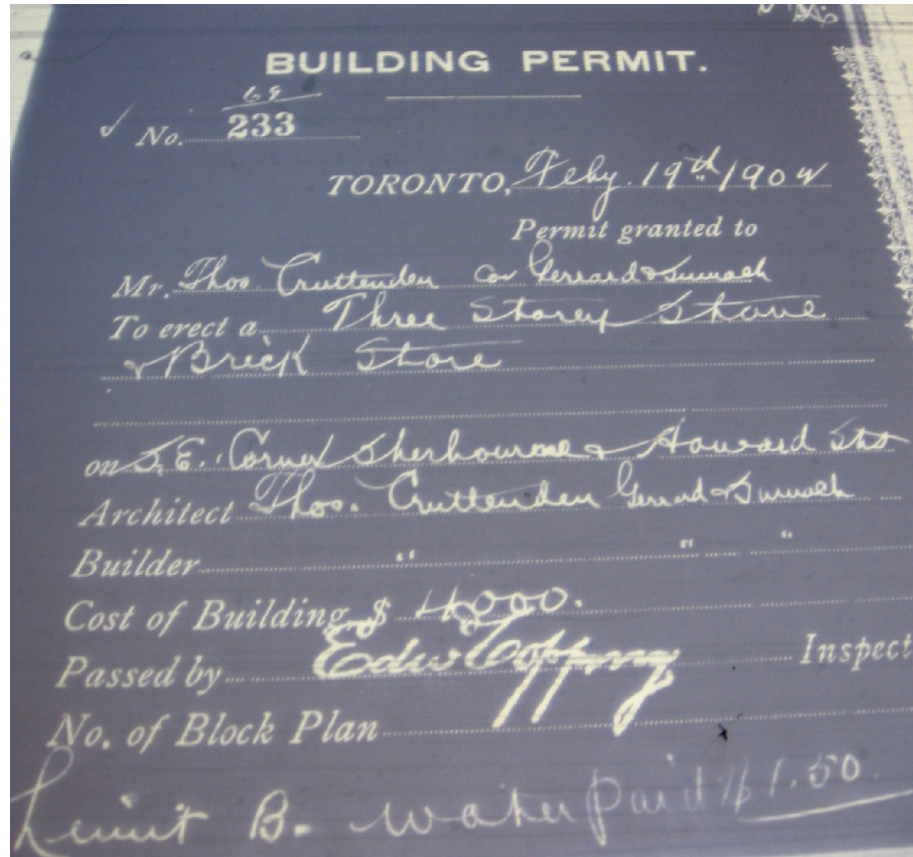 BUILDING PERMIT.
68
No. 233
TORONTO, Feby. 19th 1904
Permit granted to
Mr. Thos. Cruttenden Cor Gerrard & Sumach
To erect a Three Storey Stone
& Brick Store
on S.E. Corner Sherbourne & Howard Sts
Architect Thos. Cruttenden Gerrard & Sumach
Builder " " "
Cost of Building $ 4000.
Passed by Edw Copping Inspect
No. of Block Plan
Limit B. water paid $1.50